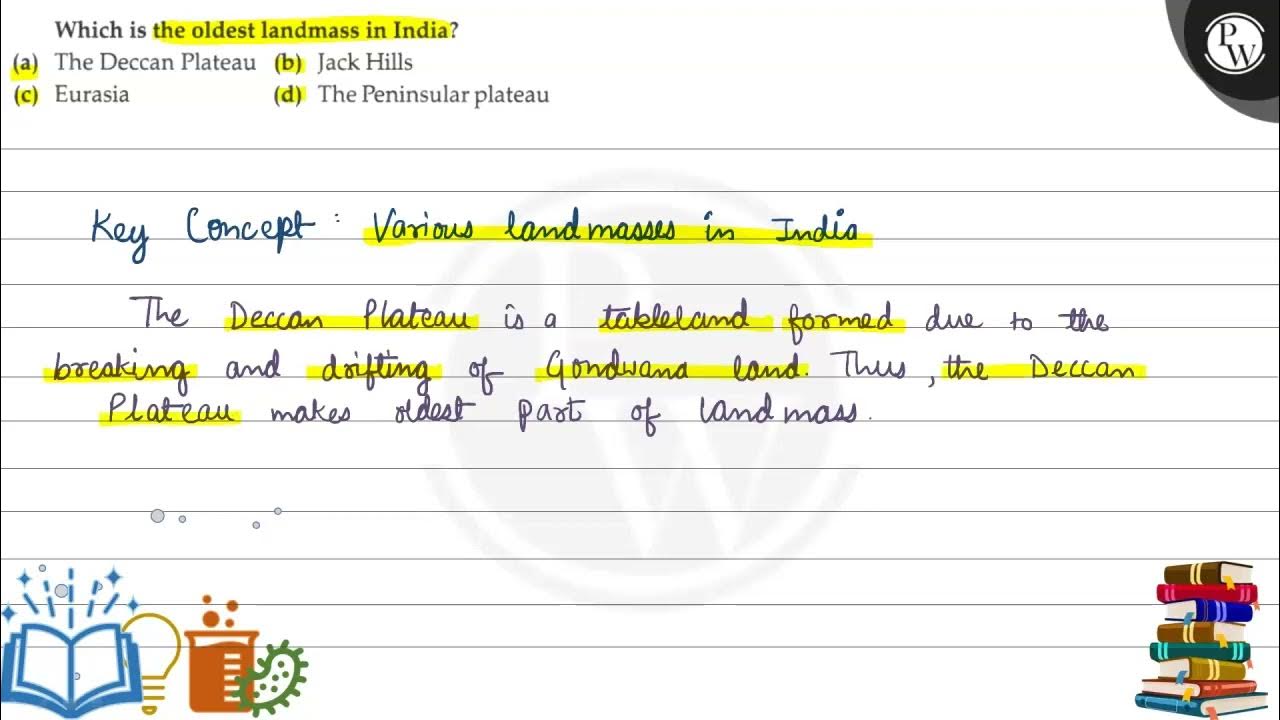 Which is the oldest landmass in India?
(a) The Deccan Plateau (b) Jack Hills
(c) Eurasia (d) The Peninsular plateau
PW
Key Concept : Various landmasses in India
The Deccan Plateau is a tableland formed due to the
breaking and drifting of Gondwana land. Thus, the Deccan
Plateau makes oldest part of landmass.
PW